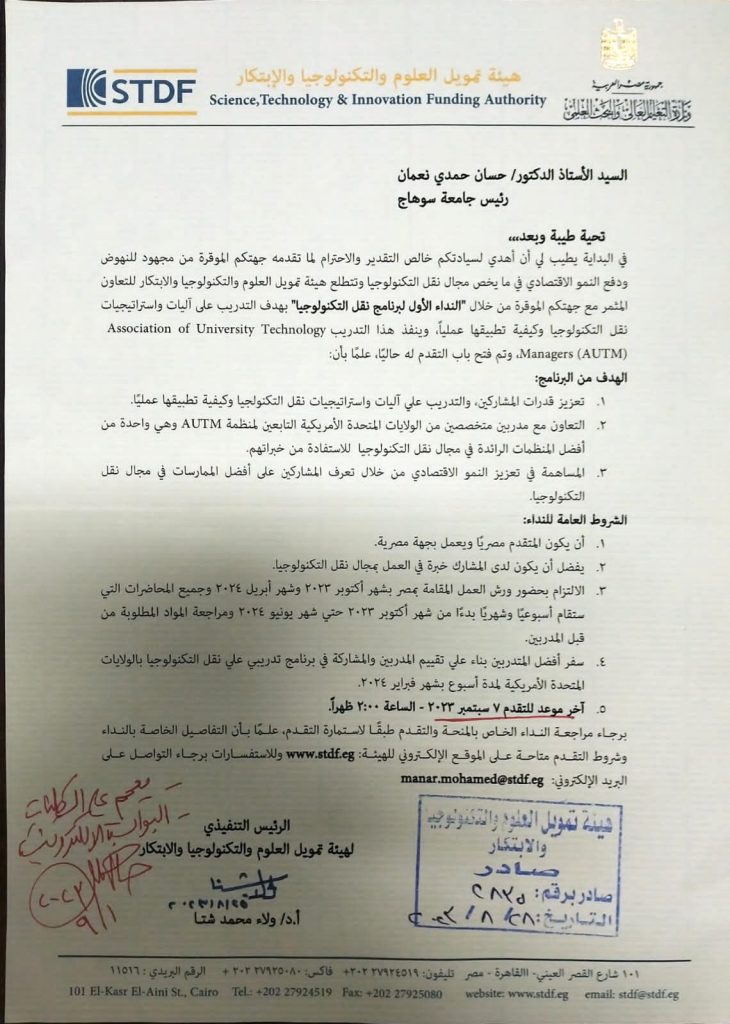 STDF
هيئة تمويل العلوم والتكنولوجيا والإبتكار
Science,Technology & Innovation Funding Authority
جمهورية مصر العربية
وزارة التعليم العالي والبحث العلمي
السيد الأستاذ الدكتور/ حسان حمدي نعمان
رئيس جامعة سوهاج
تحية طيبة وبعد،،،
في البداية يطيب لي أن أهدي لسيادتكم خالص التقدير والاحترام لما تقدمه جهتكم الموقرة من مجهود للنهوض
ودفع النمو الاقتصادي في ما يخص مجال نقل التكنولوجيا وتتطلع هيئة تمويل العلوم والتكنولوجيا والابتكار للتعاون
المثمر مع جهتكم الموقرة من خلال "النداء الأول لبرنامج نقل التكنولوجيا" بهدف التدريب على آليات واستراتيجيات
نقل التكنولوجيا وكيفية تطبيقها عملياً، وينفذ هذا التدريب Association of University Technology
Managers (AUTM)، وتم فتح باب التقدم له حاليًا، علمًا بأن:
الهدف من البرنامج:
١. تعزيز قدرات المشاركين، والتدريب علي آليات واستراتيجيات نقل التكنلوجيا وكيفية تطبيقها عمليًا.
٢. التعاون مع مدربين متخصصين من الولايات المتحدة الأمريكية التابعين لمنظمة AUTM وهي واحدة من
أفضل المنظمات الرائدة في مجال نقل التكنولوجيا للاستفادة من خبراتهم.
٣. المساهمة في تعزيز النمو الاقتصادي من خلال تعرف المشاركين على أفضل الممارسات في مجال نقل
التكنولوجيا.
الشروط العامة للنداء:
١. أن يكون المتقدم مصريًا ويعمل بجهة مصرية.
٢. يفضل أن يكون لدى المشارك خبرة في العمل بمجال نقل التكنولوجيا.
٣. الالتزام بحضور ورش العمل المقامة بمصر بشهر أكتوبر ٢٠٢٣ وشهر أبريل ٢٠٢٤ وجميع المحاضرات التي
ستقام أسبوعيًا وشهريًا بدءًا من شهر أكتوبر ٢٠٢٣ حتي شهر يونيو ٢٠٢٤ ومراجعة المواد المطلوبة من
قبل المدربين.
٤. سفر أفضل المتدربين بناء علي تقييم المدربين والمشاركة في برنامج تدريبي علي نقل التكنولوجيا بالولايات
المتحدة الأمريكية لمدة أسبوع بشهر فبراير ٢٠٢٤.
٥. آخر موعد للتقدم ٧ سبتمبر ٢٠٢٣ - الساعة ٢:٠٠ ظهراً.
برجاء مراجعة النداء الخاص بالمنحة والتقدم طبقًا لاستمارة التقدم، علمًا بأن التفاصيل الخاصة بالنداء
وشروط التقدم متاحة على الموقع الإلكتروني للهيئة: www.stdf.eg وللاستفسارات برجاء التواصل على
البريد الإلكتروني: manar.mohamed@stdf.eg
الرئيس التنفيذي
لهيئة تمويل العلوم والتكنولوجيا والابتكار
٢٠٢٣/٨/٢٥
أ.د/ ولاء محمد شتا
هيئة تمويل العلوم والتكنولوجيا
والابتكار
صادر
صادر برقم: ٢٨٣٥
التاريخ: ٢٨/ ٨ / ٢٠٢٣
يعمم على الكليات
- البوابة الالكترونية
٢٠٢٣
٩/١
١٠١ شارع القصر العيني- القاهرة - مصر تليفون: ٢٧٩٢٤٥١٩ ٢٠٢+ فاكس: ٢٧٩٢٥٠٨٠ ٢٠٢+ الرقم البريدي: ١١٥١٦
101 El-Kasr El-Aini St., Cairo Tel.: +202 27924519 Fax: +202 27925080 website: www.stdf.eg email: stdf@stdf.eg